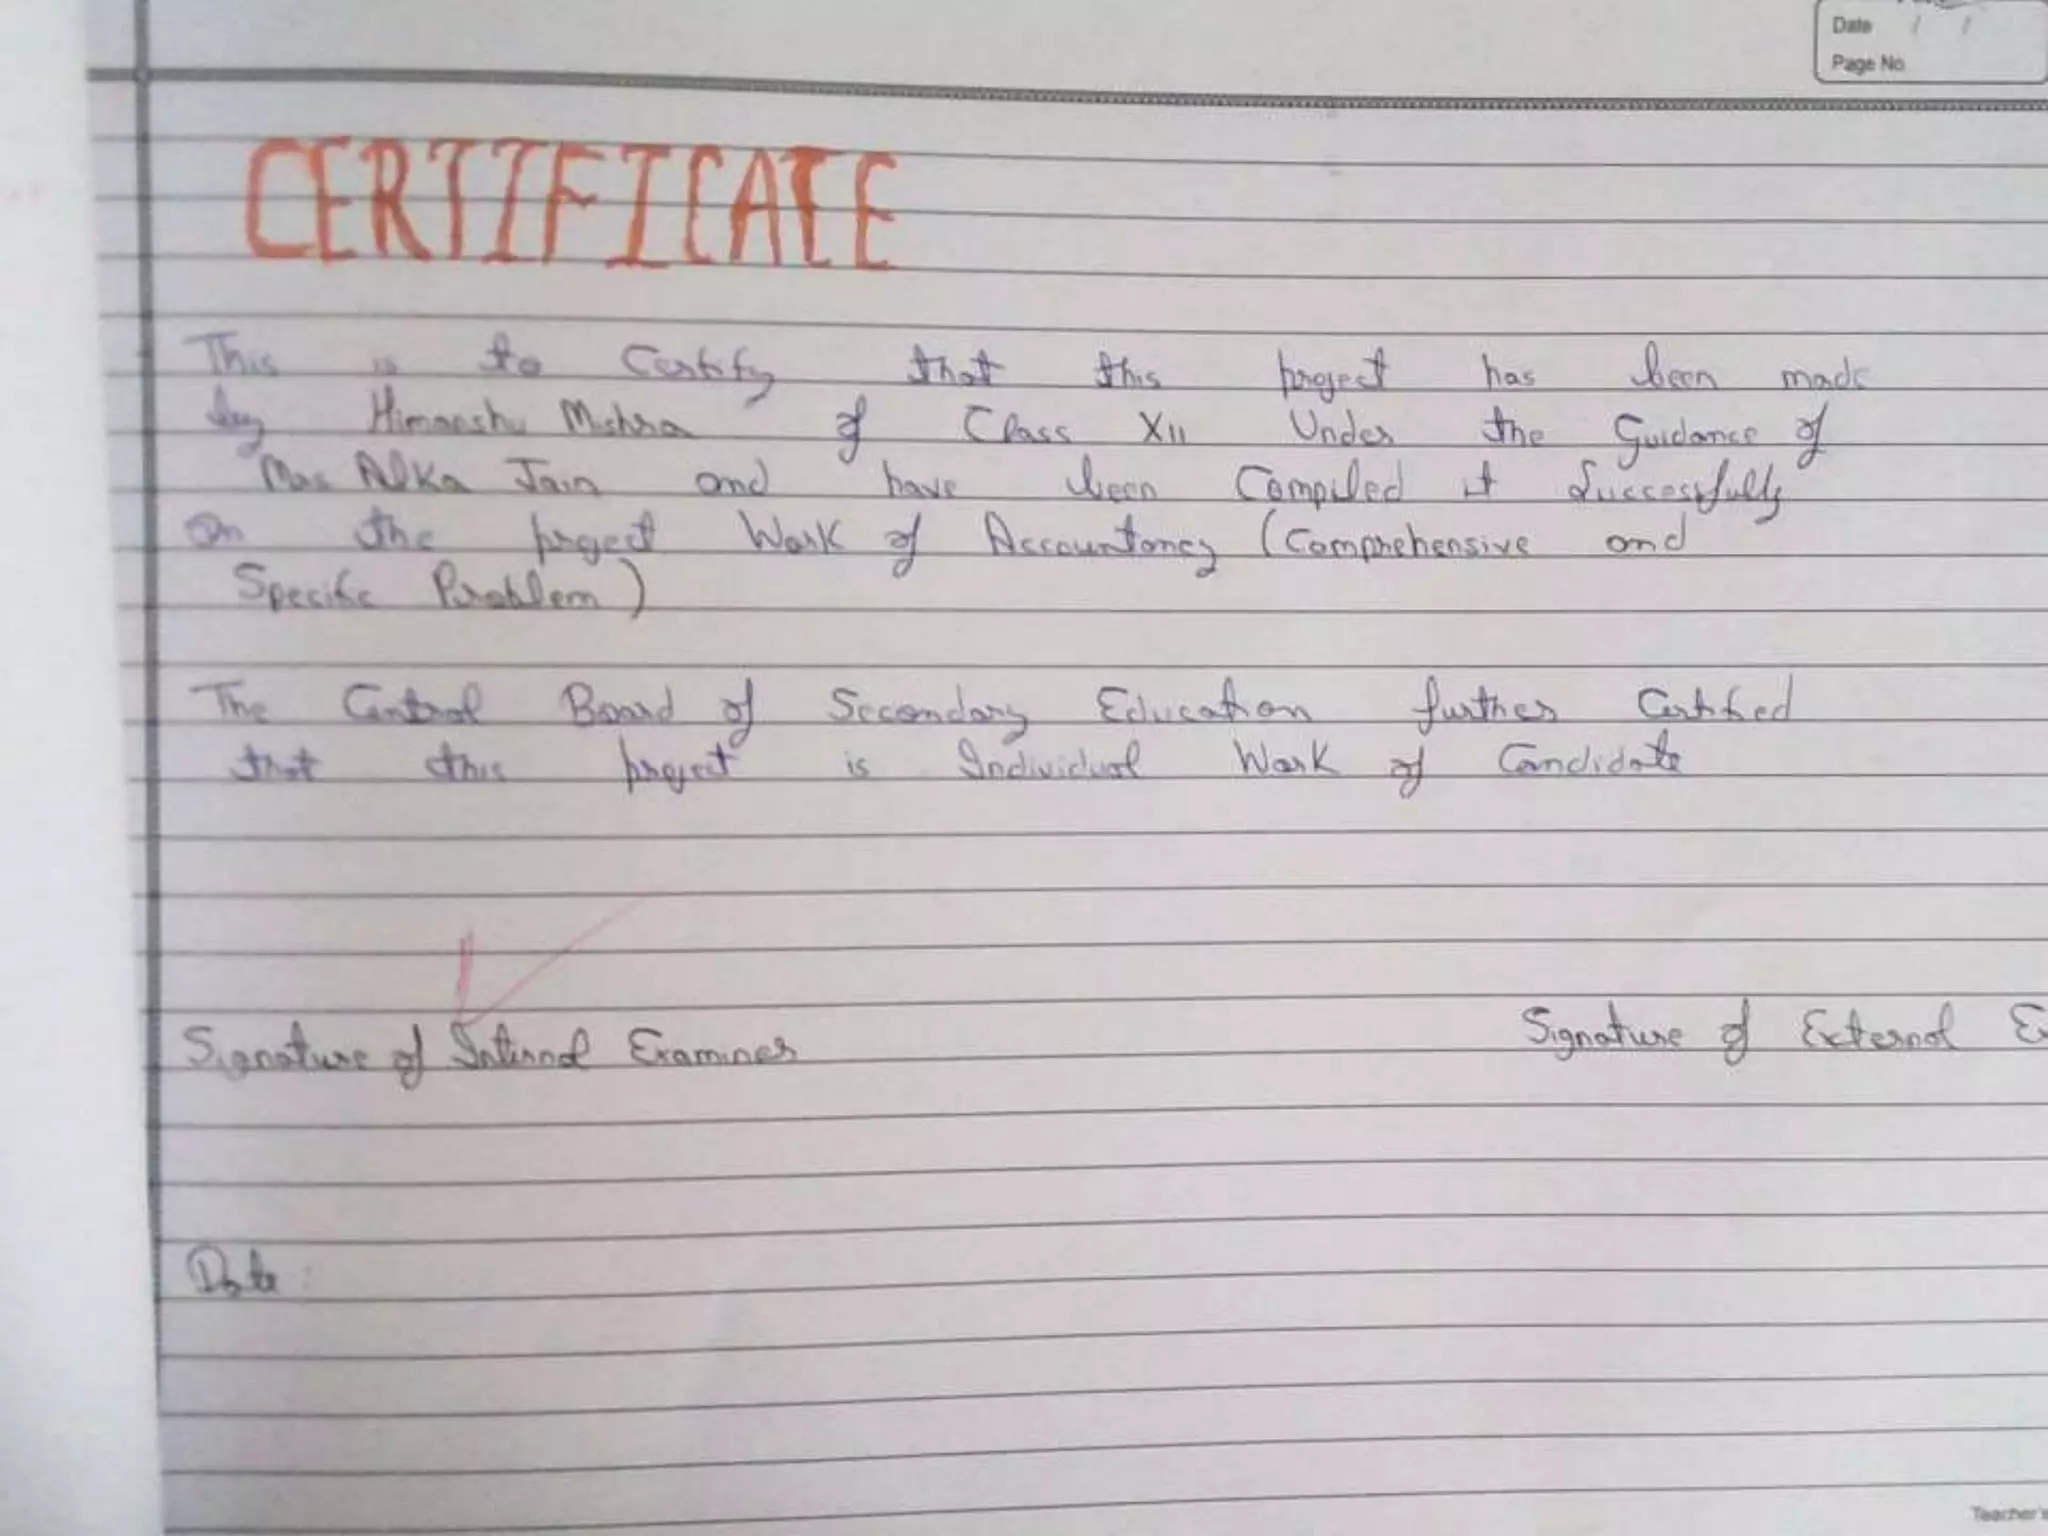 Date / /
Page No
CERTIFICATE
This is to Certify that this project has been made
by Himanshu Mishra of Class XII Under the Guidance of
Mrs Alka Jain and have been Compiled it Successfully
On the project Work of Accountancy (Comprehensive and
Specific Problem)
The Central Board of Secondary Education further Certified
that this project is Individual Work of Candidate
Signature of Internal Examiner
Signature of External Ex
Date:
Teacher's